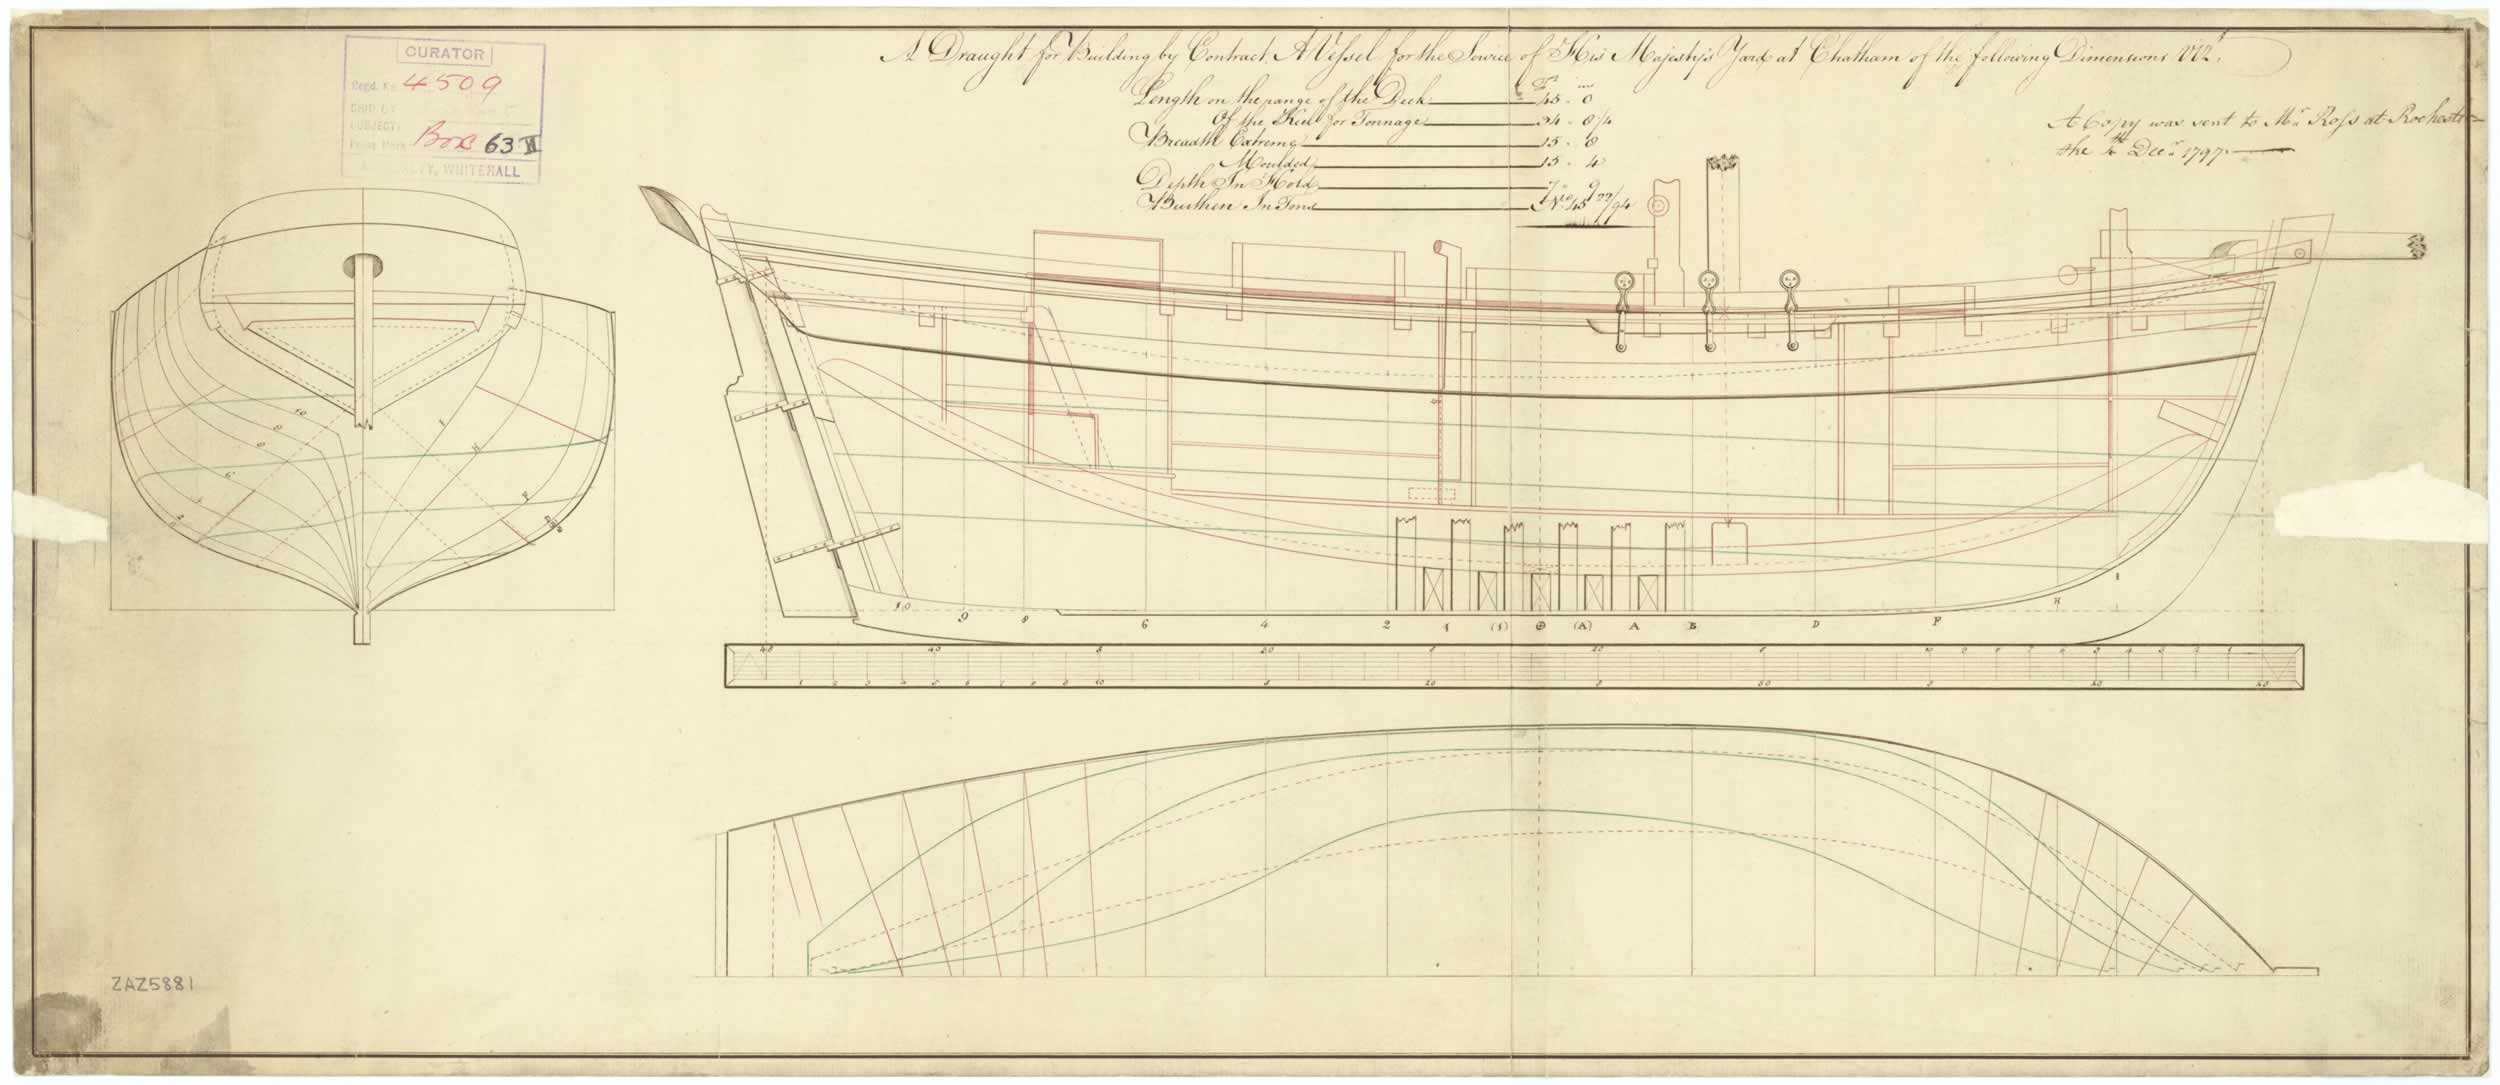 CURATOR
Regd. No 4509
SUBJECT:
Box 63 II
WHITEHALL
A Draught for Building by Contract, A Vessel for the Service of His Majesty's Yard at Chatham of the following Dimensions Viz.t
Ft ins
Length on the range of the Deck 45 " 0
Of the Keel for Tonnage 34 " 8 1/4
Breadth Extreme 15 " 8
Moulded 15 " 4
Depth In Hold 7 " 9
Burthen In Tons No 45 22/94
A Copy was sent to Mr Ross at Rochester
the Decr 1797
10 8 6
I H F
10 9 8 6 4 2 1 (1) ⊕ (A) A B D F H
ZAZ5881